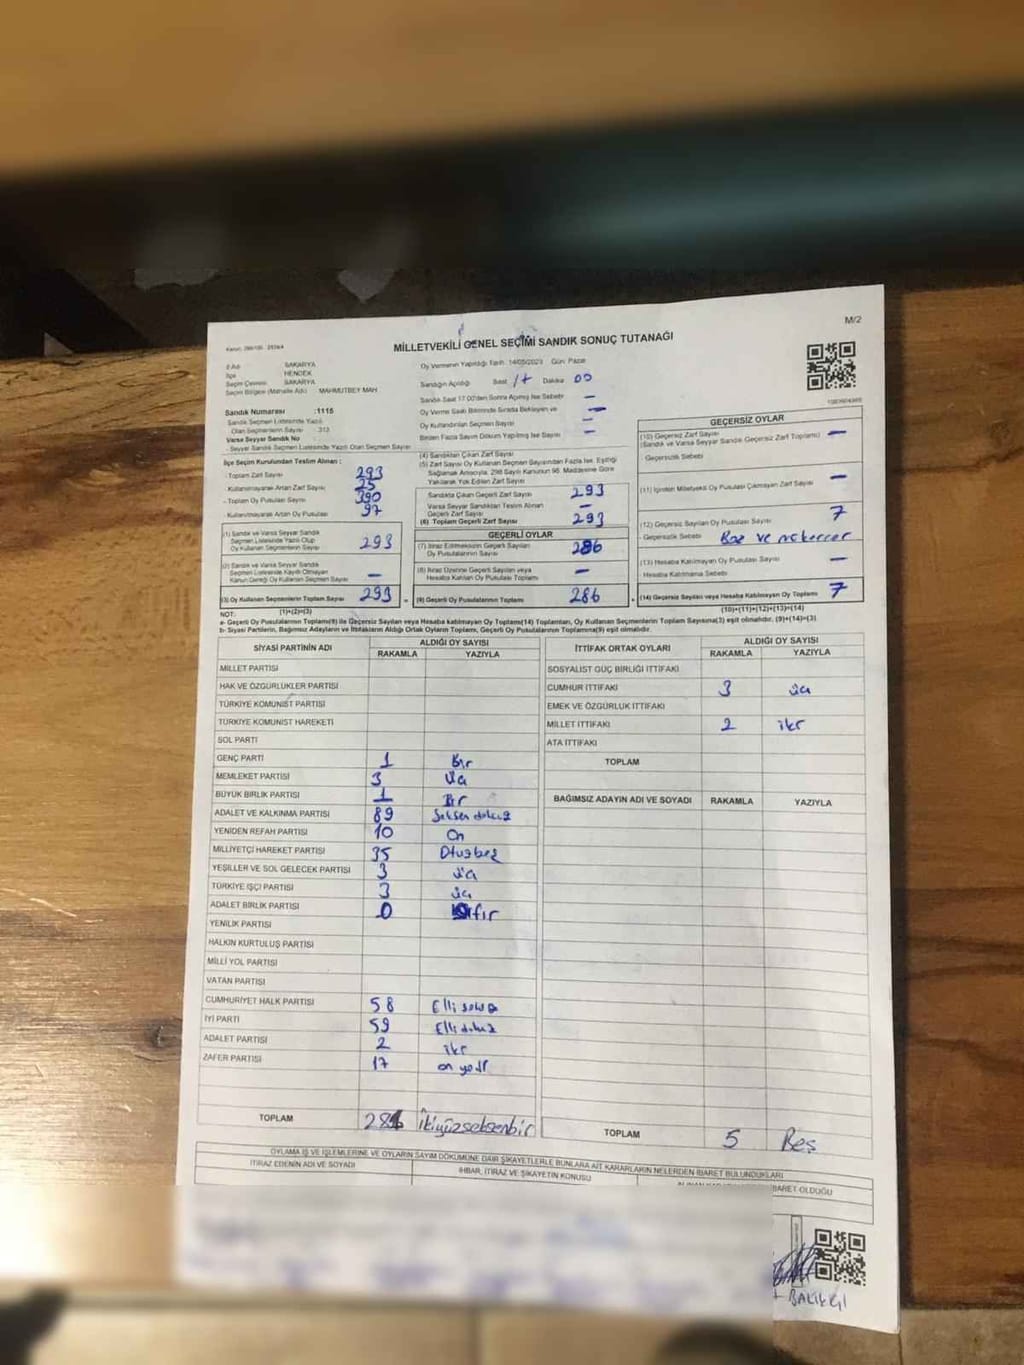 M/2
MİLLETVEKİLİ GENEL SEÇİMİ SANDIK SONUÇ TUTANAĞI
İl Adı SAKARYA
İlçe HENDEK
Seçim Çevresi SAKARYA
Seçim Bölgesi (Mahalle Adı) MAHMUTBEY MAH.
Sandık Numarası :1115
Sandık Seçmen Listesinde Yazılı
Olan Seçmenlerin Sayısı : 313
Varsa Seyyar Sandık No
- Seyyar Sandık Seçmen Listesinde Yazılı Olan Seçmen Sayısı
Oy Vermenin Yapıldığı Tarih: 14/05/2023 Gün: Pazar
Sandığın Açıldığı Saat 17 Dakika 00
Sandık Saat 17.00'den Sonra Açılmış İse Sebebi —
Oy Verme Saati Bitiminde Sırada Bekleyen ve
Oy Kullandırılan Seçmen Sayısı —
Birden Fazla Sayım Döküm Yapılmış İse Sayısı —
İlçe Seçim Kurulundan Teslim Alınan :
- Toplam Zarf Sayısı 293
- Kullanılmayarak Artan Zarf Sayısı 25
- Toplam Oy Pusulası Sayısı 390
- Kullanılmayarak Artan Oy Pusulası 97
(1) Sandık ve Varsa Seyyar Sandık
Seçmen Listesinde Yazılı Olup
Oy Kullanan Seçmenlerin Sayısı 293
(2) Sandık ve Varsa Seyyar Sandık
Seçmen Listesinde Kayıtlı Olmayan
Kanun Gereği Oy Kullanan Seçmen Sayısı —
(3) Oy Kullanan Seçmenlerin Toplam Sayısı 293
(1)+(2)=(3)
(4) Sandıktan Çıkan Zarf Sayısı
(5) Zarf Sayısı Oy Kullanan Seçmen Sayısından Fazla İse, Eşitliği
Sağlamak Amacıyla, 298 Sayılı Kanunun 98. Maddesine Göre
Yakılarak Yok Edilen Zarf Sayısı
Sandıkta Çıkan Geçerli Zarf Sayısı 293
Varsa Seyyar Sandıktan Teslim Alınan
Geçerli Zarf Sayısı —
(6) Toplam Geçerli Zarf Sayısı 293
GEÇERLİ OYLAR
(7) İtiraz Edilmeksizin Geçerli Sayılan
Oy Pusulalarının Sayısı 286
(8) İtiraz Üzerine Geçerli Sayılan veya
Hesaba Katılan Oy Pusulaları Toplamı —
(9) Geçerli Oy Pusulalarının Toplamı 286
GEÇERSİZ OYLAR
(10) Geçersiz Zarf Sayısı
(Sandık ve Varsa Seyyar Sandık Geçersiz Zarf Toplamı) —
- Geçersizlik Sebebi
(11) İçinden Milletvekili Oy Pusulası Çıkmayan Zarf Sayısı —
(12) Geçersiz Sayılan Oy Pusulası Sayısı 7
- Geçersizlik Sebebi ve
(13) Hesaba Katılmayan Oy Pusulası Sayısı —
- Hesaba Katılmama Sebebi
(14) Geçersiz Sayılan veya Hesaba Katılmayan Oy Toplamı 7
(10)+(11)+(12)+(13)=(14)
NOT:
a- Geçerli Oy Pusulaları(9) ile Geçersiz Sayılan veya Hesaba Katılmayan Oy Toplamı(14) Toplamları, Oy Kullanan Seçmenlerin Toplam Sayısına(3) eşit olmalıdır. (9)+(14)=(3)
b- Siyasi Partilerin, Bağımsız Adayların ve İttifakların Aldığı Ortak Oyların Toplamı, Geçerli Oy Pusulalarının Toplamına(9) eşit olmalıdır.
SİYASİ PARTİNİN ADI ALDIĞI OY SAYISI
RAKAMLA YAZIYLA
MİLLET PARTİSİ
HAK VE ÖZGÜRLÜKLER PARTİSİ
TÜRKİYE KOMÜNİST PARTİSİ
TÜRKİYE KOMÜNİST HAREKETİ
SOL PARTİ
GENÇ PARTİ 1 Bir
MEMLEKET PARTİSİ 3 üç
BÜYÜK BİRLİK PARTİSİ 1 Bir
ADALET VE KALKINMA PARTİSİ 89 Seksen dokuz
YENİDEN REFAH PARTİSİ 10 On
MİLLİYETÇİ HAREKET PARTİSİ 35 Otuzbeş
YEŞİLLER VE SOL GELECEK PARTİSİ 3 üç
TÜRKİYE İŞÇİ PARTİSİ 3 üç
ADALET BİRLİK PARTİSİ 0 Sıfır
YENİLİK PARTİSİ
HALKIN KURTULUŞ PARTİSİ
MİLLİ YOL PARTİSİ
VATAN PARTİSİ
CUMHURİYET HALK PARTİSİ 58 Elli sekiz
İYİ PARTİ 59 Elli dokuz
ADALET PARTİSİ 2 iki
ZAFER PARTİSİ 17 on yedi
TOPLAM 281 İkiyüzseksenbir
İTTİFAK ORTAK OYLARI ALDIĞI OY SAYISI
RAKAMLA YAZIYLA
SOSYALİST GÜÇ BİRLİĞİ İTTİFAKI
CUMHUR İTTİFAKI 3 üç
EMEK VE ÖZGÜRLÜK İTTİFAKI
MİLLET İTTİFAKI 2 iki
ATA İTTİFAKI
TOPLAM
BAĞIMSIZ ADAYIN ADI VE SOYADI RAKAMLA YAZIYLA
TOPLAM 5 Beş
OYLAMA İŞ VE İŞLEMLERİNE VE OYLARIN SAYIM DÖKÜMÜNE DAİR ŞİKAYETLERLE BUNLARA AİT KARARLARIN NELERDEN İBARET BULUNDUKLARI
İTİRAZ EDENİN ADI VE SOYADI
İHBAR, İTİRAZ VE ŞİKAYETİN KONUSU
İBARET OLDUĞU